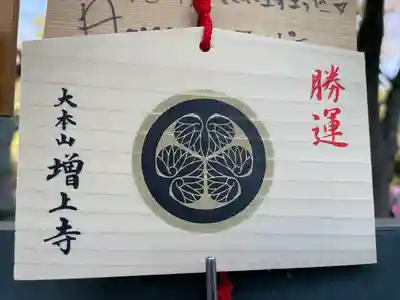 勝運
大本山 増上寺